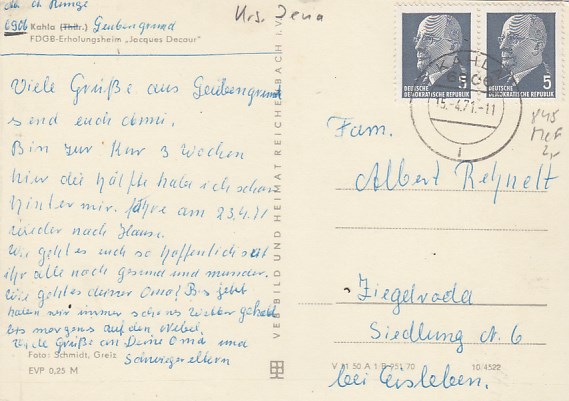 Runge
Krs. Jena
6906 Kahla (Thür.) Geubengrund
FDGB-Erholungsheim „Jacques Decour"
Viele Grüße aus Geubengrund
send euch
Bin zur Kur 3 Wochen
hier die Hälfte habe ich schon
hinter mir. fahre am 23.4.71
wieder nach Hause.
Wie geht es euch so hoffentlich seit
ihr alle noch gesund und munder.
Wie geht es deiner Oma? Bis jetzt
haben wir immer schönes Wetter gehabt
bis morgens auf den Nebel.
Viele Grüße an Deine Oma und
Schwiegereltern
Foto: Schmidt, Greiz
EVP 0,25 M
VEB BILD UND HEIMAT REICHENBACH I. V.
DEUTSCHE
DEMOKRATISCHE REPUBLIK
5
DEUTSCHE
DEMOKRATISCHE REPUBLIK
5
KAHLA
6906
15.-4.71.-11
Fam.
Albert Rehnelt
Ziegelroda
Siedlung N. 6
bei Eisleben.
V 11 50 A 1 B 951/70 10/4522